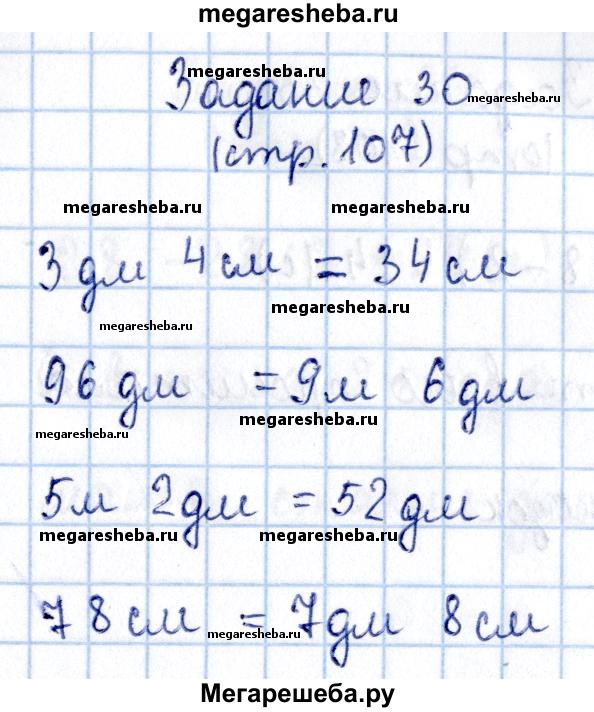 megaresheba.ru
megaresheba.ru
Задание 30 megaresheba.ru
(стр. 107)
megaresheba.ru megaresheba.ru
3 дм 4 см = 34 см
megaresheba.ru
megaresheba.ru
96 дм = 9 м 6 дм
megaresheba.ru
megaresheba.ru
5 м 2 дм = 52 дм
megaresheba.ru megaresheba.ru
78 см = 7 дм 8 см
megaresheba.ru
Мегарешеба.ру